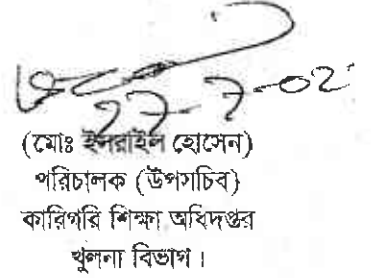 27-7-02
(মোঃ ইসরাইল হোসেন)
পরিচালক (উপসচিব)
কারিগরি শিক্ষা অধিদপ্তর
খুলনা বিভাগ।